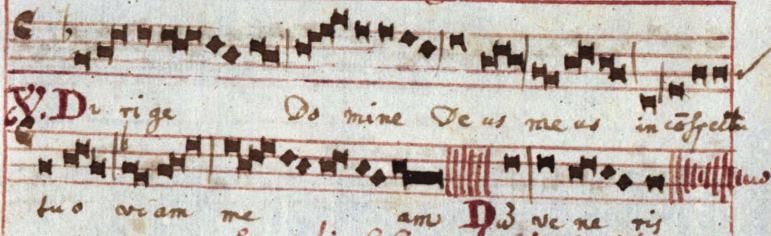 V. Di ri ge Do mine De us me us in cōspectu
tuo viam me am Dū ve ne ris